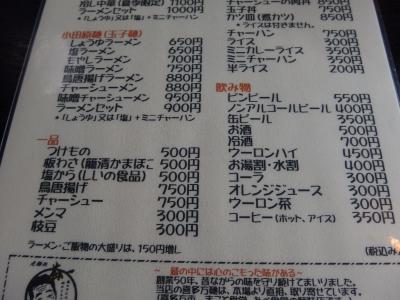 冷し中華(夏季限定) 1100円
ラーメンセット 1000円
*「しょうゆ」又は「塩」+ミニチャーハン
小田原麺(玉子麺)
しょうゆラーメン 650円
塩ラーメン 650円
もやしラーメン 750円
味噌ラーメン 750円
鳥唐揚げラーメン 880円
チャーシューメン 880円
味噌チャーシューメン 950円
ラーメンセット 900円
*「しょうゆ」又は「塩」+ミニチャーハン
一品
つけもの 500円
板わさ(籠清かまぼこ) 500円
塩から(しいの食品) 500円
鳥唐揚げ 750円
チャーシュー 750円
メンマ 300円
枝豆 300円
ラーメン・ご飯物の大盛りは、150円増し
チャーシューの煮丼 850円
玉子丼 750円
カツ皿(煮カツ) 850円
*ライスは付きません。
チャーハン 750円
ライス 300円
ミニカレーライス 350円
ミニチャーハン 350円
半ライス 200円
飲み物
ビンビール 550円
ノンアルコールビール 400円
缶ビール 350円
お酒 500円
冷酒 700円
ウーロンハイ 450円
お湯割・水割 400円
コーラ 300円
オレンジジュース 300円
ウーロン茶 300円
コーヒー(ホット、アイス) 350円
(税込み)
~ 麺の中には心のこもった味がある~
創業50年、昔ながらの味を守り続けてまいりました。
当店の喜多方麺は、本場より直用、取り寄せています。